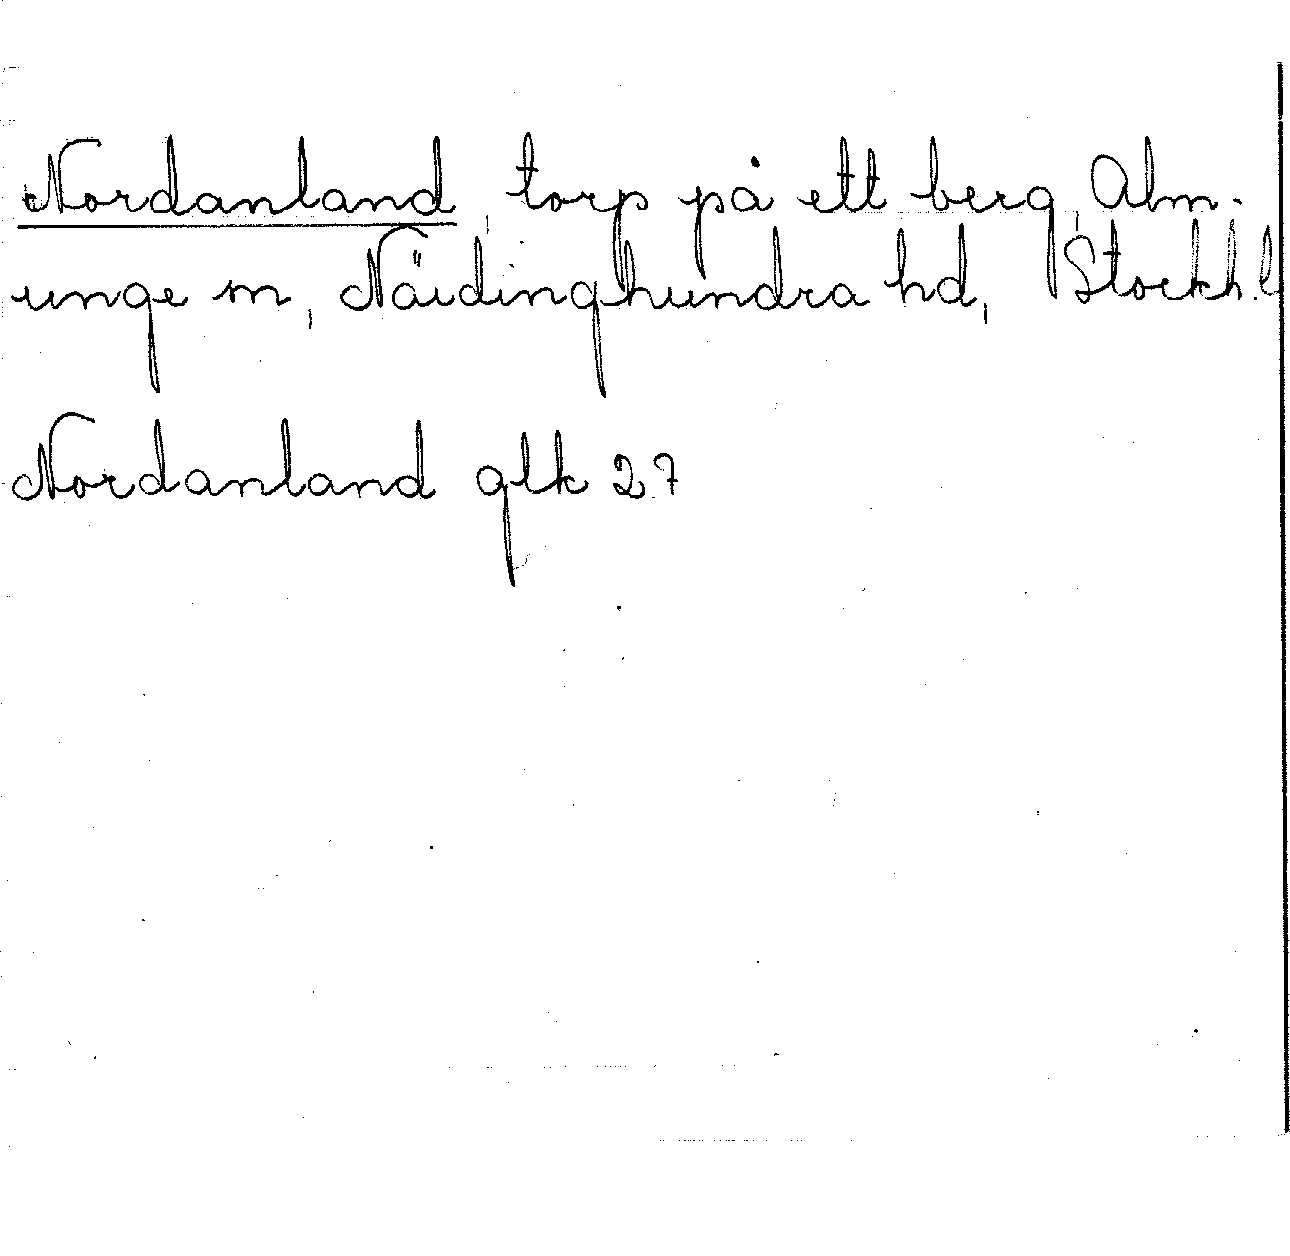 Nordanland, torp på ett berg, Alm-
unge sn, Närdinghundra hd, Stockh. l
Nordanland glk 27